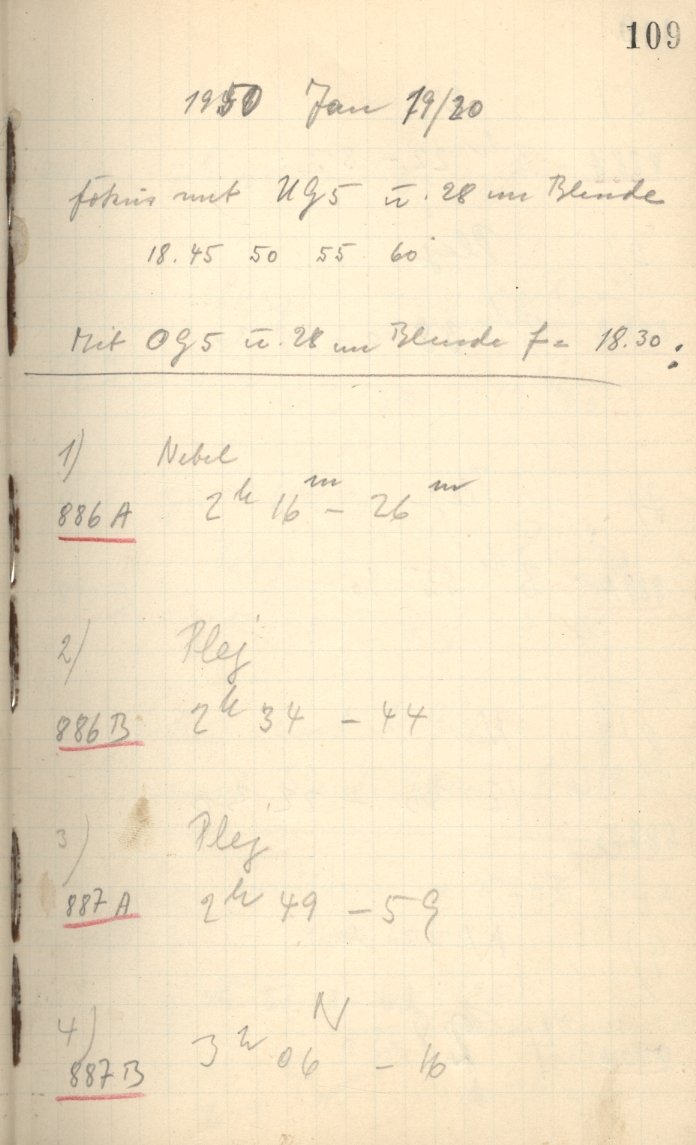 109
1950 Jan 19/20
fokus mit UG5 u. 28 mm Blende
18.45 50 55 60
Mit OG5 u. 28 mm Blende f = 18.30
1) Nebel
886 A 2h 16m - 26m
2) Plej
886 B 2h 34 - 44
3) Plej
887 A 2h 49 - 59
4) N
887 B 3h 06 - 16